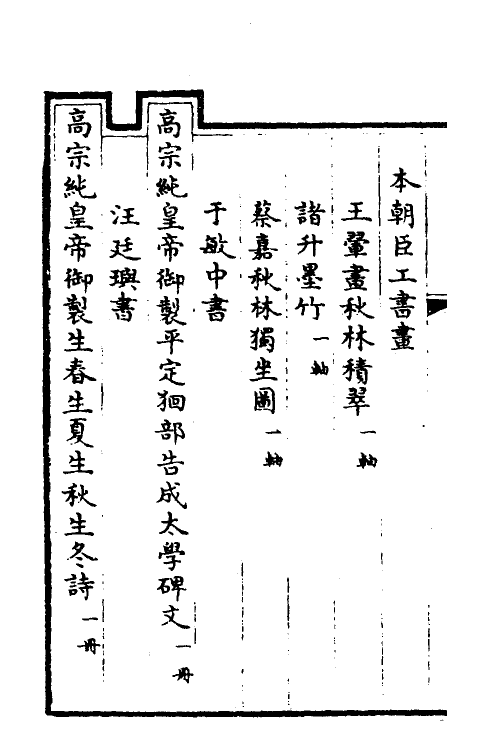 本朝臣工書畫
王翬畫秋林積翠一軸
諸升墨竹一軸
蔡嘉秋林獨坐圖一軸
于敏中書
高宗純皇帝御製平定回部告成太學碑文一冊
汪廷璵書
高宗純皇帝御製生春生夏生秋生冬詩一冊